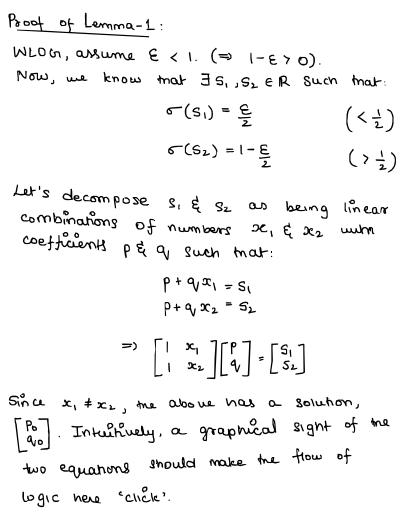 Proof of Lemma-1:
WLOG, assume ε < 1. (⇒ 1-ε > 0).
Now, we know that ∃ s₁, s₂ ∈ ℝ such that:
σ(s₁) = ε/2 (< 1/2)
σ(s₂) = 1 - ε/2 (> 1/2)
Let's decompose s₁ & s₂ as being linear
combinations of numbers x₁ & x₂ with
coefficients p & q such that:
p + q x₁ = s₁
p + q x₂ = s₂
⇒ [1 x₁; 1 x₂] [p; q] = [s₁; s₂]
Since x₁ ≠ x₂, the above has a solution,
[p₀; q₀]. Intuitively, a graphical sight of the
two equations should make the flow of
logic here 'click'.